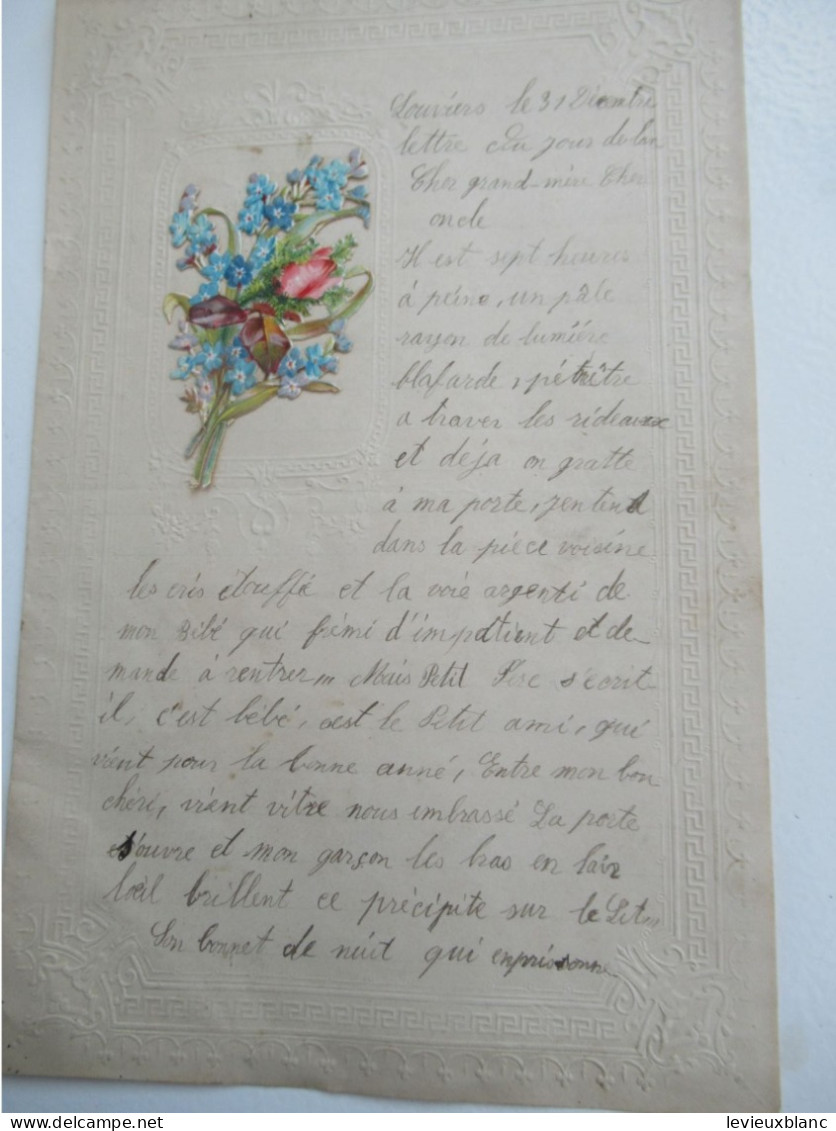 Louviers le 31 Décembre
lettre du jour de lan
Cher grand-mère Cher
oncle
Il est sept heures
à peine, un pâle
rayon de lumiére
blafarde, pétrître
a traver les rideaux
et déja on gratte
à ma porte, jentend
dans la piece voisine
les cris étouffé et la voie argenti de
mon Bébé qui frémi d'impatient et de-
mande à rentrer,,, Mais Petit s'écrit
il, c'est bébé, cest le Petit ami, qui
vient pour la bonne anné, Entre mon bon
chéri, vient vitre nous imbrassé La porte
s'ouvre et mon garçon les bras en lair
lœil brillent ce précipite sur le
Son bonnet de nuit qui enprisonne
levieuxblanc